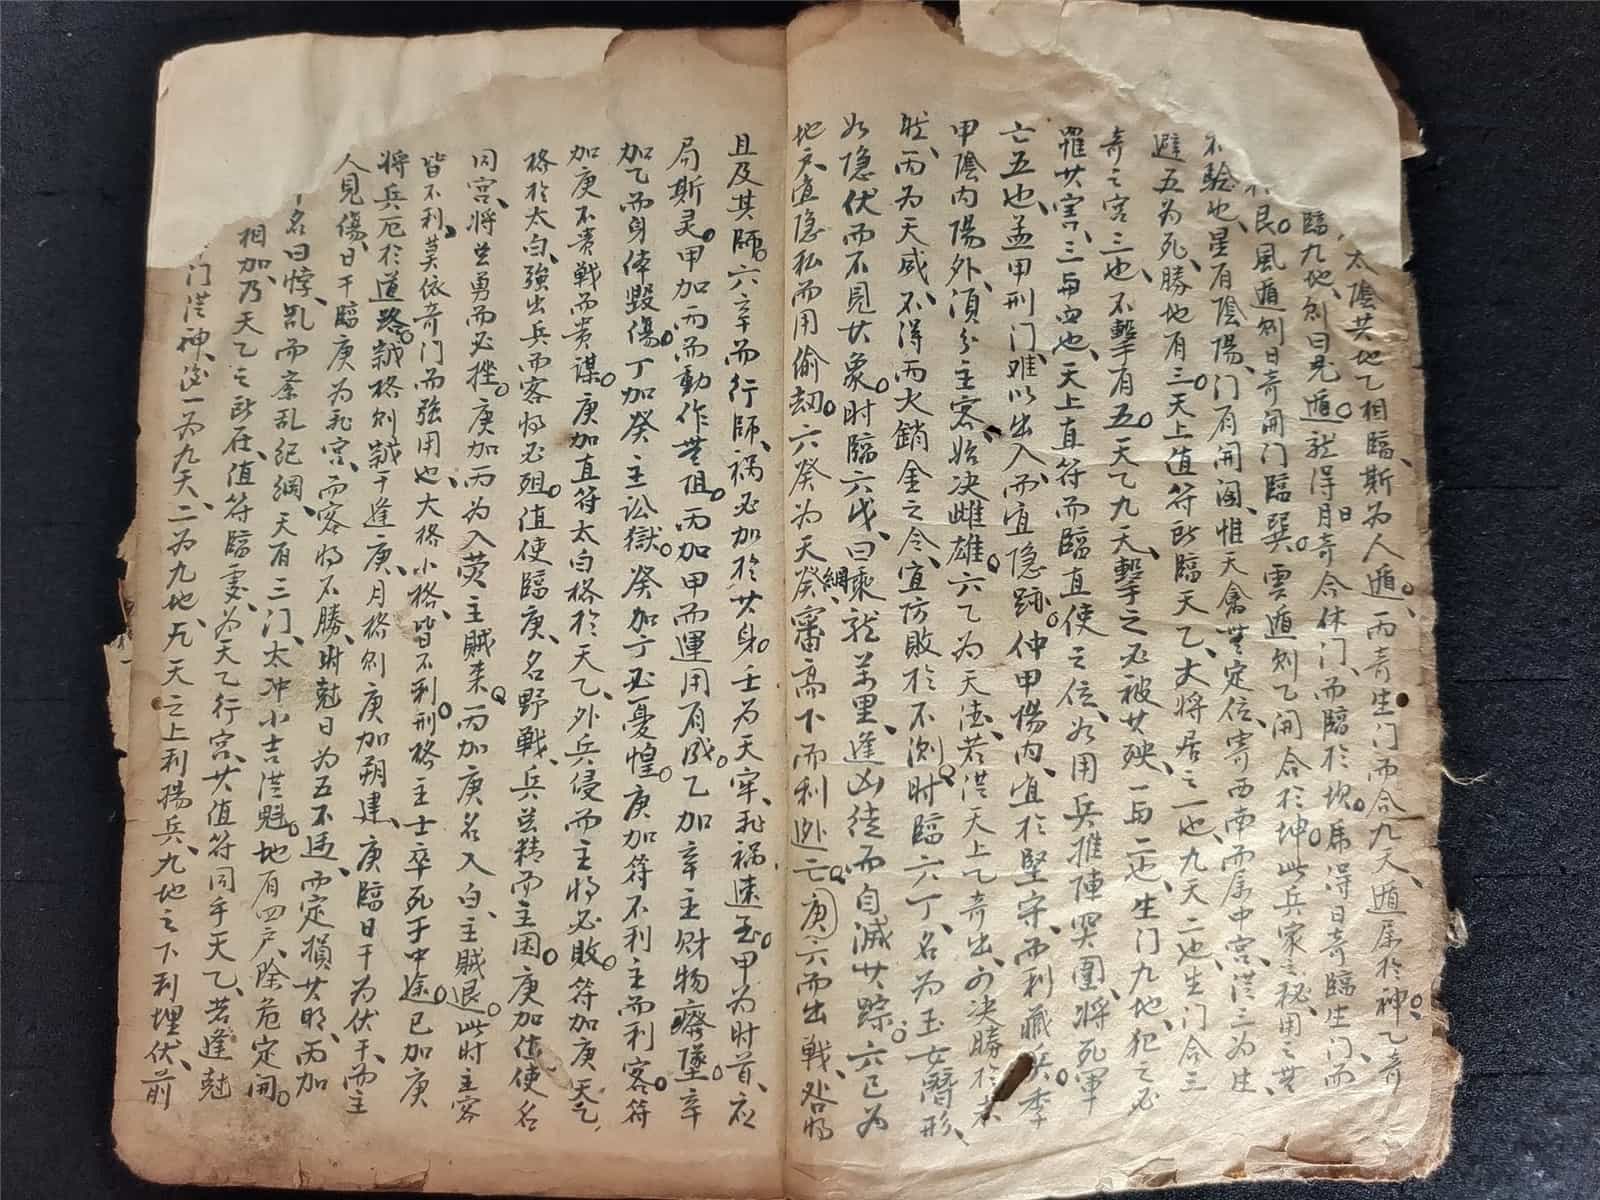 太陰其地乙相臨、斯为人遁。丙奇生门而合九天、遁属於神。乙奇
臨九地、则曰鬼遁。龍得日月奇合休门、而臨於坎。虎得日奇臨生门而
艮。風遁则日奇開门臨巽。雲遁则乙開合於坤。此兵家之秘用之其
不驗也、星有陰陽、门有開阖、惟天禽無定位、寄西南而属中宮、涯三为生
避五为死。勝地有三、天上值符所臨天乙、大將居之一也、九天二也、生门合三
奇之宮三也、不擊有五。天乙九天、擊之必被其殃、一与二也、生门九地、犯之必
罹其害、三与四也、天上直符而臨直使之位、如用兵推陣哭圍、將死军
亡五也。孟甲刑门、难以出入、而宜隐跡。仲甲傷内、宜於堅守、而利藏兵。季
甲陰内陽外、須分主客、始决雌雄。六乙为天法、若涯天上乙奇出、可决勝於未
然、丙为天威、不得而火銷金之令、宜防敗於不測。时臨六丁、名为玉女潛形、
如隐伏而不見其象。时臨六戊、曰乘龍萬里、逢凶徒而自滅其踪。六己为
地户、宜隐私而用偷刼。六癸为天網、審高下而利逊亡。庚六而出戰、咎將
且及其師。六辛而行師、祸必加於其身。壬为天牢、祸速至。甲为时首、应
局斯灵。甲加丙而動作無阻。丙加甲而運用有成。乙加辛主財物瘠墜。辛
加乙而身体毁傷。丁加癸主訟獄。癸加丁必憂惶。庚加符不利主而利客。符
加庚不贵戰而贵謀。庚加直符太白格於天乙、外兵侵而主將必敗。符加庚天乙
格於太白、強出兵而客將必殂。值使臨庚、名野戰、兵虽精而主困。庚加值使名
同宮、將虽勇而必挫。庚加丙为入荧主賊来。丙加庚名入白、主賊退。此时主客
皆不利、莫依奇门而強用也、大格小格、皆不利。刑格主士卒死于中途。己加庚
將兵厄於道路。誠格则誠于逢庚、月格则庚加朔建、庚臨日干为伏干、而主
人見傷、日干臨庚为飛宮、而客將不勝、时尅日为五不遇、而定損其明、丙加
名曰悖、乱而紊乱纪綱、天有三门、太冲小吉涯魁。地有四户、除危定開。
相加、乃天乙之所在、值符臨處、为天乙行宮、其值符同乎天乙、若逢尅
门涯神、一为九天、二为九地、九天之上利揚兵、九地之下利埋伏、前